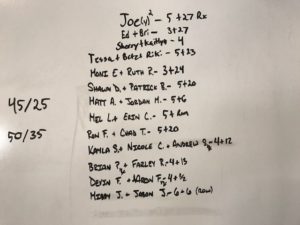 Joe(y)² - 5+27 Rx
Ed + Bri - 3+27
Sherry + Kaitlyn - 4
Tessa + Betzi Riki - 5+23
Moni E + Ruth P. - 3+24
Shawn D. + Patrick B. - 5+20
Matt A. + Jordan M. - 5+6
Mel L. + Erin C. - 5 +
Ron F. + Chad T. - 5+20
Kayla S. + Nicole C. + Andrew - 4+12
Brian P. + Farley R. - 4+13
Devin F. + Aaron F - 4+1/2
Missy J. + Jason J. - 6+6 (row)
45/25
50/35